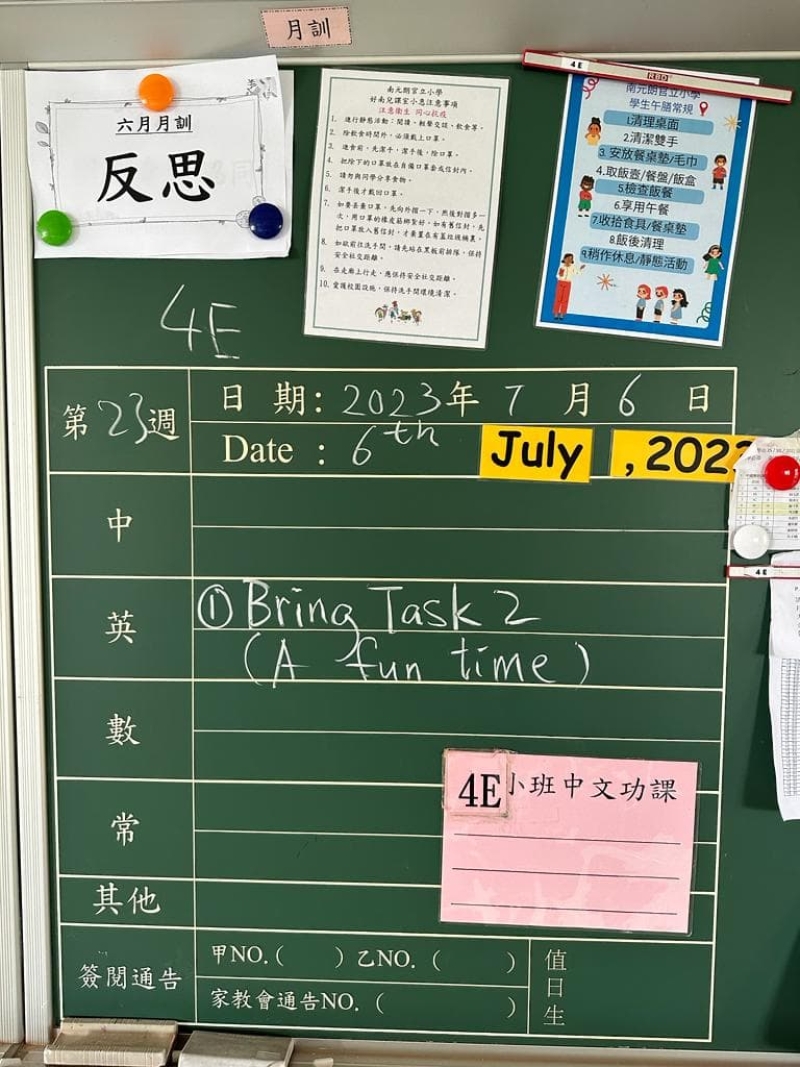 月訓
六月月訓
反思
南元朗官立小學
好南兒課室小息注意事項
注意衛生 同心抗疫
1. 進行靜態活動：閱讀、輕聲交談、飲食等。
2. 除飲食時間外，必須戴上口罩。
3. 進食前，先潔手，潔手後，除口罩。
4. 把除下的口罩放在自備口罩套或信封內。
5. 請勿與同學分享食物。
6. 潔手後才戴回口罩。
7. 如要丟棄口罩，先向外摺一下，然後對摺多一
次，用口罩的橡皮筋綁緊好。如有舊信封，先
把口罩放入舊信封，才棄置在有蓋垃圾桶裏。
8. 如欲前往洗手間，請先站在黑板前排隊，保持
安全社交距離。
9. 在走廊上行走，應保持安全社交距離。
10. 愛護校園設施，保持洗手間環境清潔。
4E
RBD
南元朗官立小學
學生午膳常規
1.清理桌面
2.清潔雙手
3. 安放餐桌墊/毛巾
4.取飯壼/餐盤/飯盒
5.檢查飯餐
6.享用午餐
7.收拾食具/餐桌墊
8.飯後清理
9.稍作休息/靜態活動
4E
第23週
日 期: 2023年 7 月 6 日
Date : 6th July , 2023
中
英
① Bring Task 2
(A fun time)
數
常
其他
4E 小班中文功課
4E
簽閱通告
甲NO.( ) 乙NO. ( )
家教會通告NO. ( )
值日生